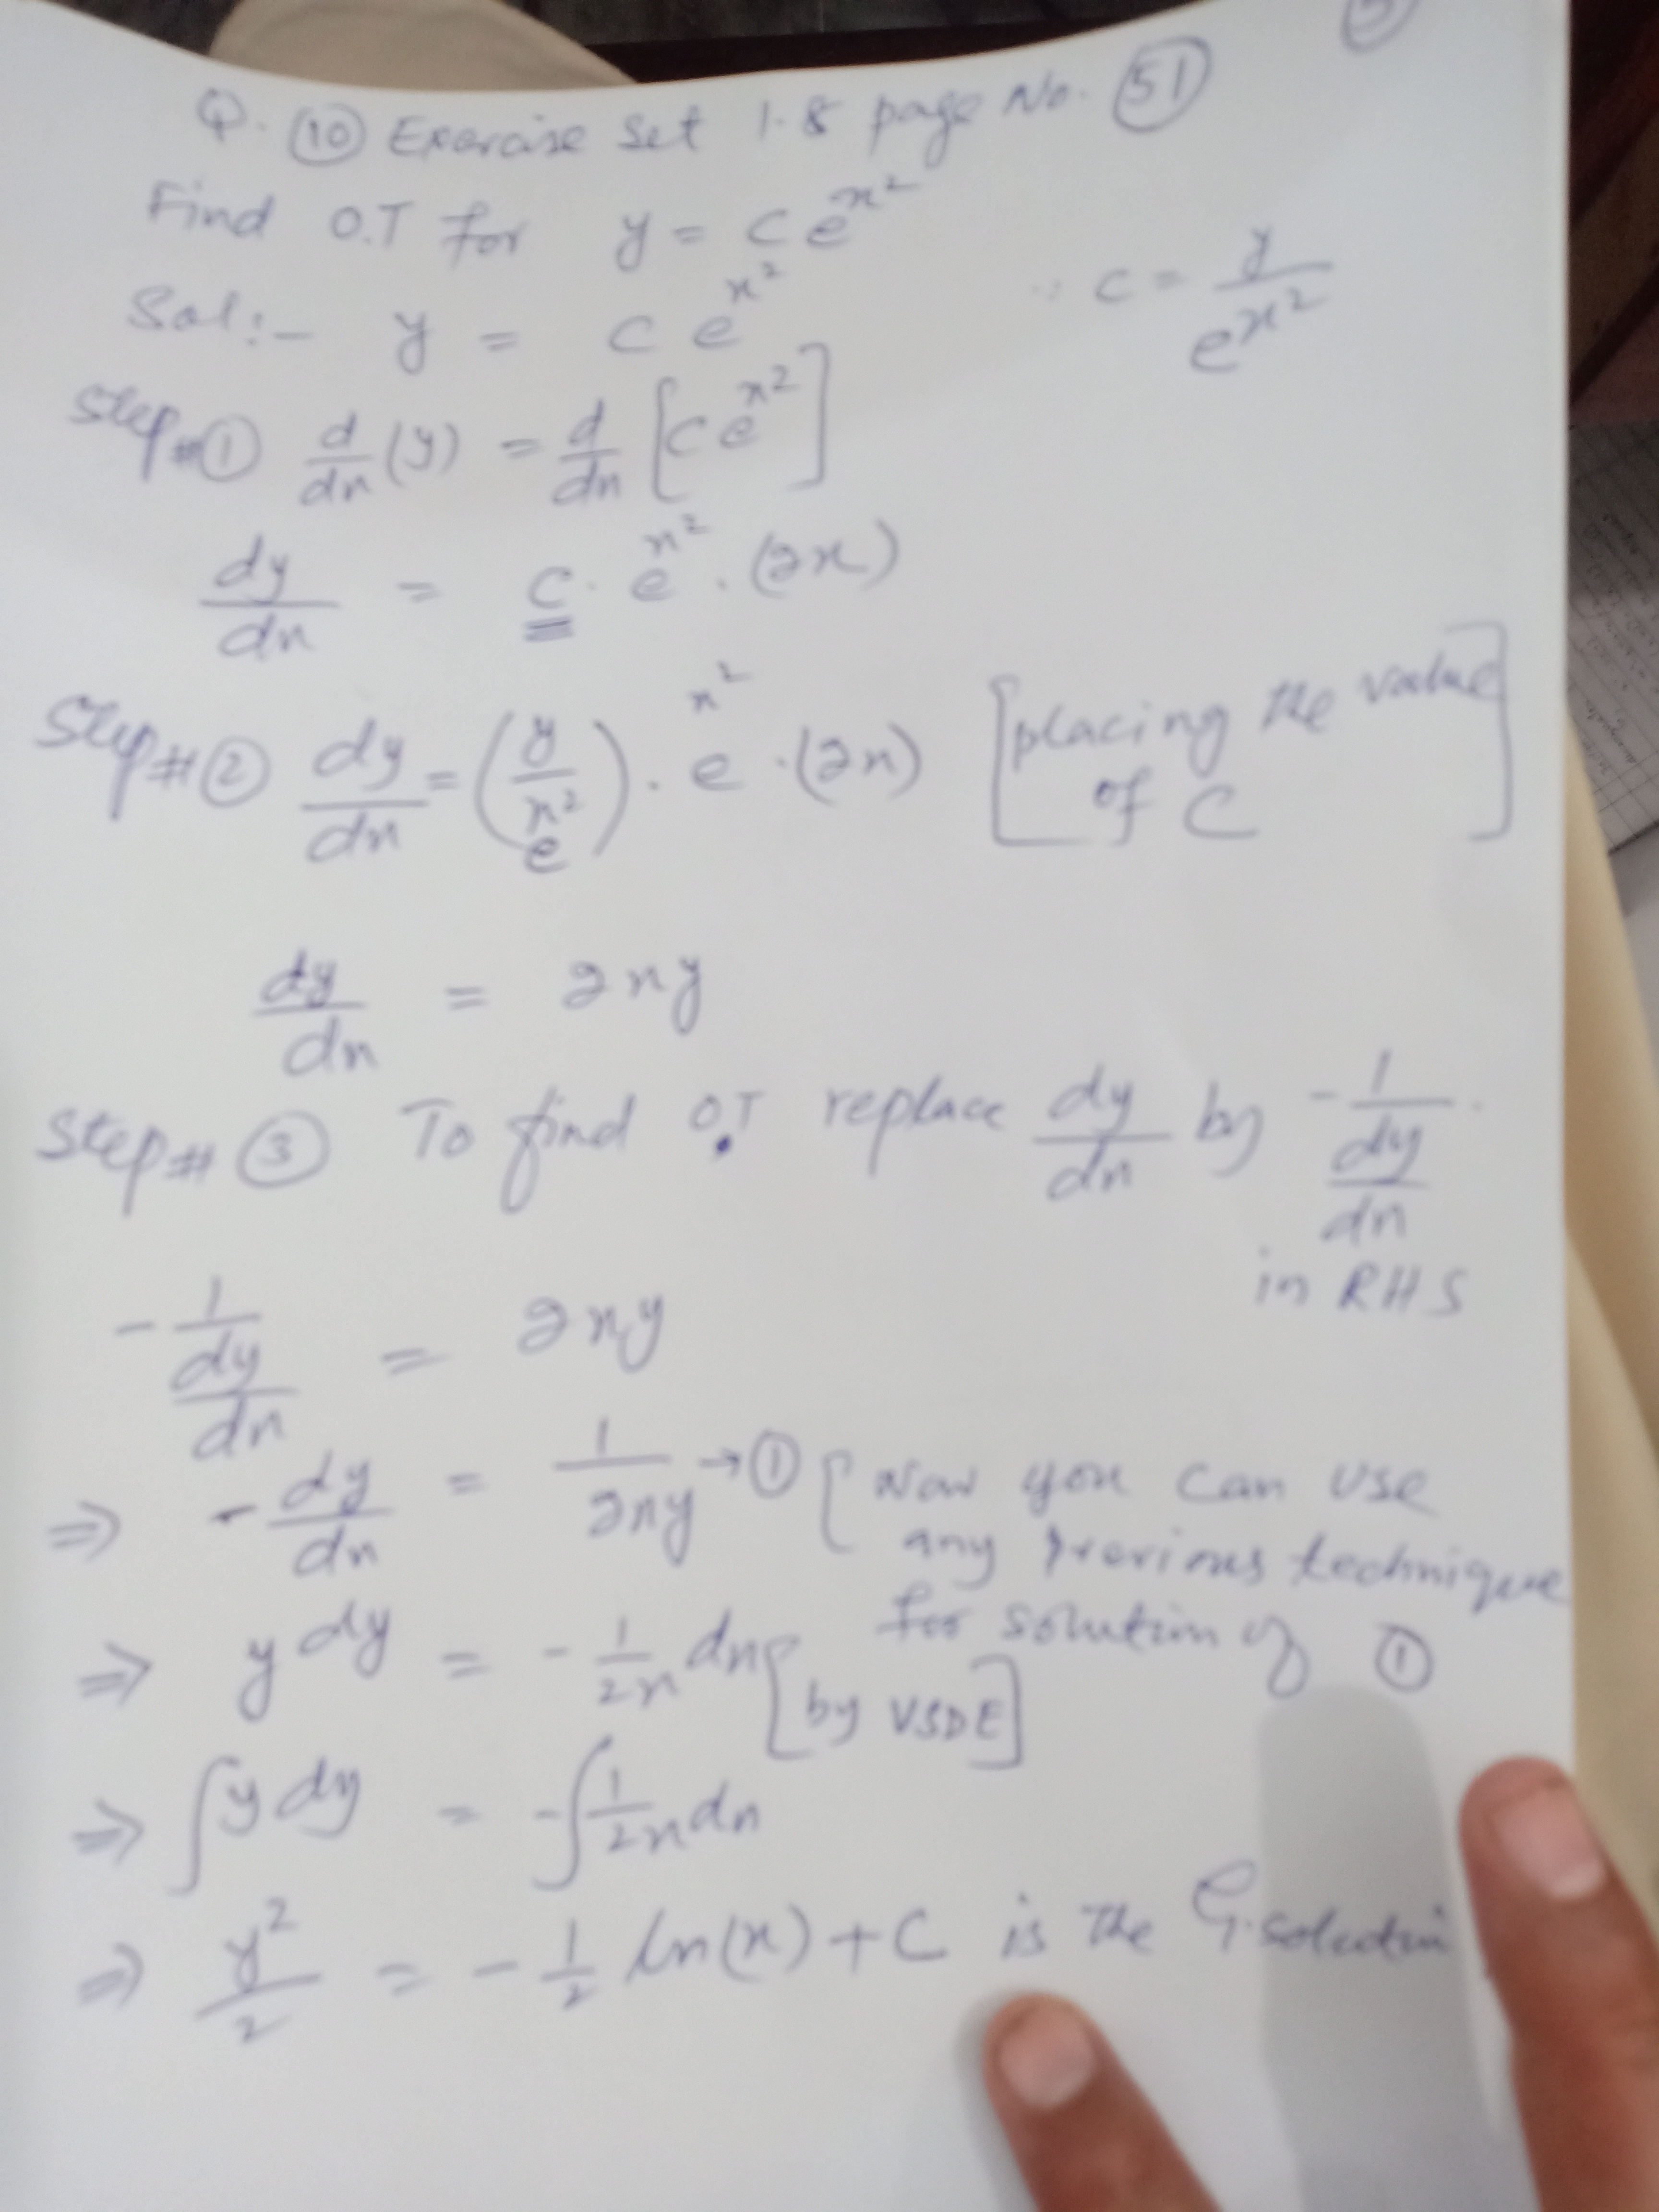 Q. (10) Exercise Set 1.8 page No. (51)
Find O.T for y = c e^x²
Sol:- y = c e^x² ∴ c = y/e^x²
Step#(1) d/dx (y) = d/dx [c e^x²]
dy/dx = c . e^x² . (2x)
Step#(2) dy/dx = (y/e^x²) . e^x² . (2x) [placing the value
of C]
dy/dx = 2xy
Step#(3) To find O.T replace dy/dx by -1/(dy/dx)
in RHS
-1/(dy/dx) = 2xy
⇒ -dy/dx = 1/2xy → (1) [Now you can use
any previous technique
for solution of (1)
⇒ y dy = -1/2x dx [by VSDE]
⇒ ∫y dy = -∫1/2x dx
⇒ y²/2 = -1/2 ln(x) + C is the G.solution